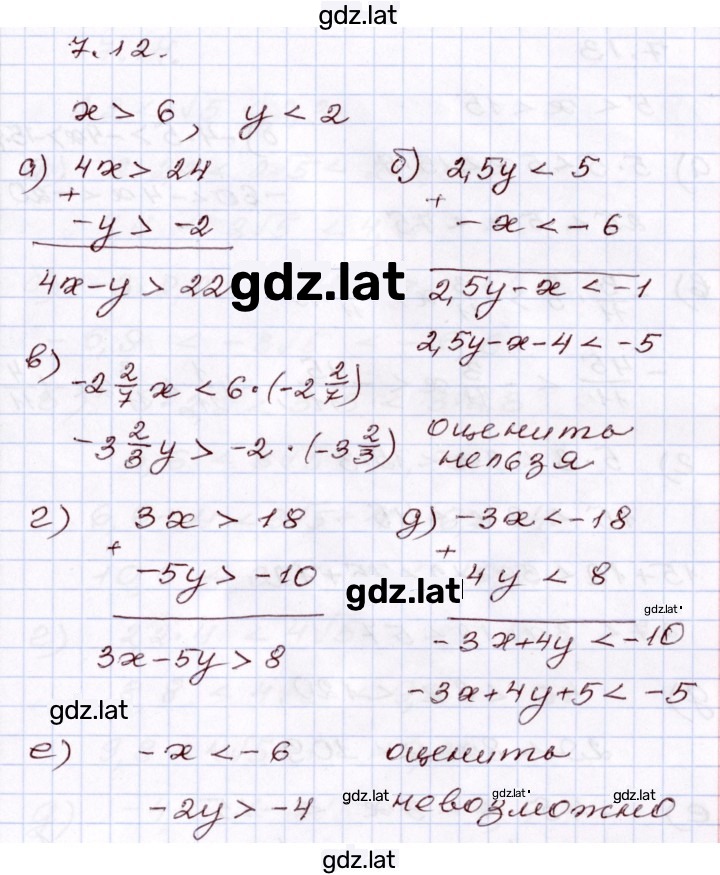 gdz.lat
7.12.
x > 6, y < 2
а) 4x > 24
+
-y > -2
4x-y > 22
б) 2,5y < 5
+
-x < -6
2,5y-x < -1
2,5y-x-4 < -5
gdz.lat
в) -2 2/7 x < 6·(-2 2/7)
-3 2/3 y > -2·(-3 2/3)
оценить
нельзя
г) 3x > 18
+
-5y > -10
3x-5y > 8
д) -3x < -18
+
4y < 8
-3x+4y < -10
-3x+4y+5 < -5
gdz.lat
gdz.lat
gdz.lat
е) -x < -6
-2y > -4
оценить
невозможно
gdz.lat
gdz.lat
gdz.lat
gdz.lat